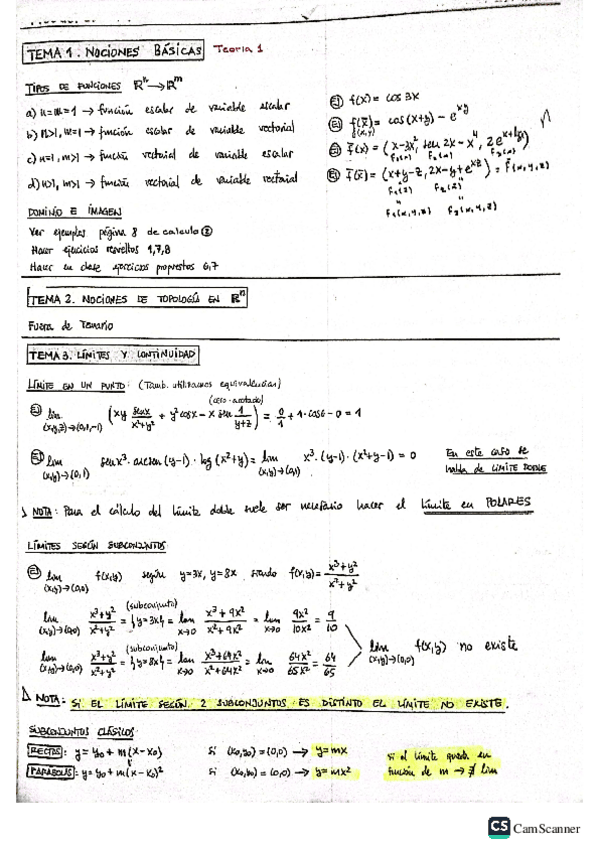 TEMA 1. NOCIONES BÁSICAS Teoria 1
TIPOS DE FUNCIONES ℝⁿ → ℝᵐ
a) n=m=1 → función escalar de variable escalar
b) n>1, m=1 → función escalar de variable vectorial
c) n=1, m>1 → función vectorial de variable escalar
d) n>1, m>1 → función vectorial de variable vectorial
Ej f(x) = cos 3x
Ej f(x̄) = cos(x+y) − e^xy
f(x,y)
Ej f̄(x) = (x−3x², sen 2x − x⁴, 2e^x+
f₁(x) f₂(x) f₃(x)
Ej f̄(x̄) = (x+y−z, 2x−y+e^xz) = f̄(x,y,z)
f₁(x̄) f₂(x̄)
f₁(x,y,z) f₂(x,y,z)
DOMINIO E IMAGEN
Ver ejemplos página 8 de calculo ②
Hacer ejercicios resueltos 1,7,8
Hacer en clase ejercicios propuestos 6,7
TEMA 2. NOCIONES DE TOPOLOGÍA EN ℝⁿ
Fuera de Temario
TEMA 3. LÍMITES Y CONTINUIDAD
LÍMITE EN UN PUNTO: (Tamb. utilizamos equivalencias)
(cero · acotado)
Ej lim (x,y,z)→(0,1,−1) (xy senx/x²+y² + y² cosx − x sen 1/y+z) = 0/1 + 1·cos0 − 0 = 1
Ej lim (x,y)→(0,1) senx³ · arcsen (y−1) · log (x²+y) = lim (x,y)→(0,1) x³ · (y−1) · (x²+y−1) = 0
En este caso se
habla de LIMITE DOBLE
NOTA: Para el cálculo del límite doble suele ser necesario hacer el límite en POLARES
LÍMITES SEGÚN SUBCONJUNTOS
Ej lim (x,y)→(0,0) f(x,y) según y=3x, y=8x siendo f(x,y) = x³+y²/x²+y²
lim (x,y)→(0,0) x³+y²/x²+y² = (subconjunto) {y=3x} = lim x→0 x³+9x²/x²+9x² = lim x→0 9x²/10x² = 9/10
lim (x,y)→(0,0) x³+y²/x²+y² = (subconjunto) {y=8x} = lim x→0 x³+64x²/x²+64x² = lim x→0 64x²/65x² = 64/65
lim (x,y)→(0,0) f(x,y) no existe
NOTA: SI EL LÍMITE SEGÚN 2 SUBCONJUNTOS ES DISTINTO EL LÍMITE NO EXISTE.
SUBCONJUNTOS CLÁSICOS
RECTAS: y = y₀ + m(x−x₀) si (x₀,y₀) = (0,0) → y=mx
PARÁBOLAS: y = y₀ + m(x−x₀)² si (x₀,y₀) = (0,0) → y=mx²
si el límite queda en
función de m → ∄ lim
CS CamScanner